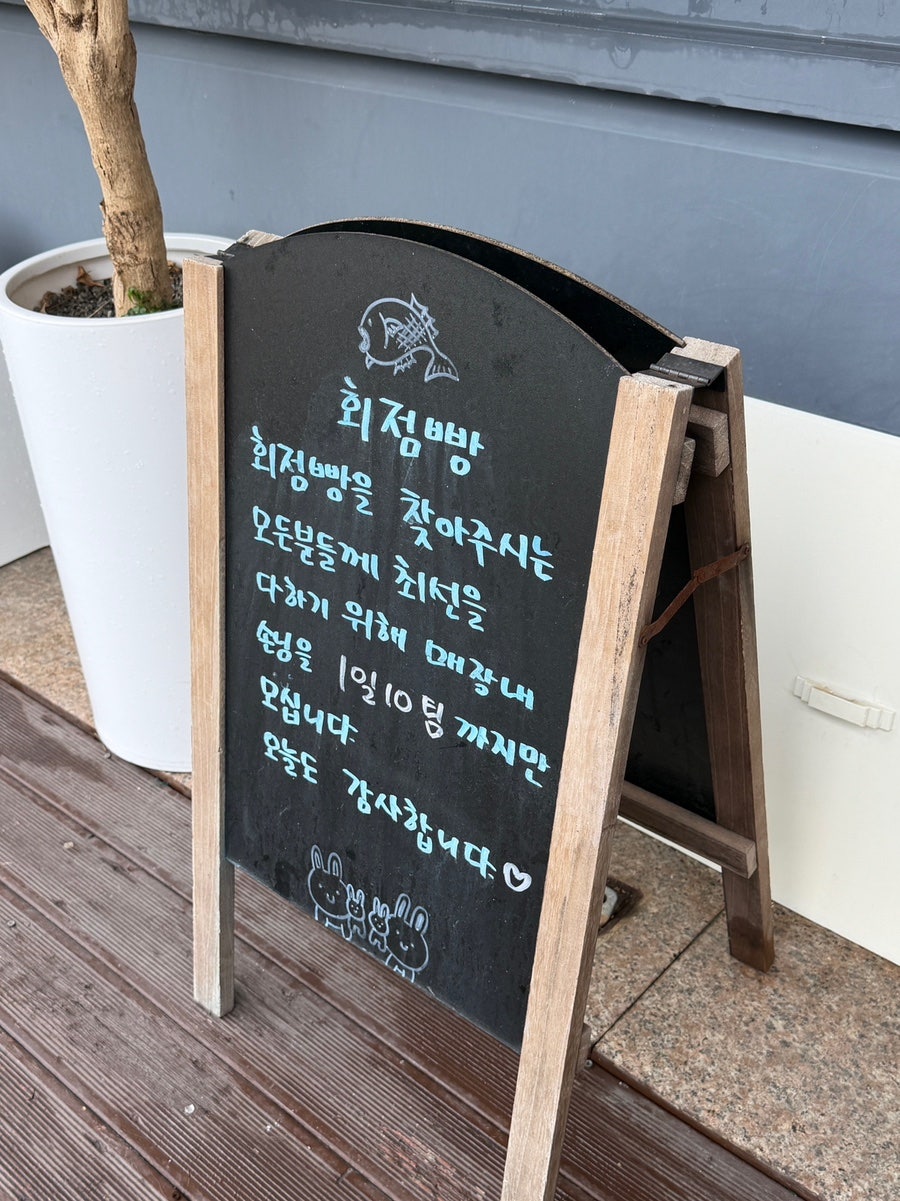 회점빵
회점빵을 찾아주시는
모든분들께 최선을
다하기 위해 매장내
손님을 1일10팀 까지만
모십니다.
오늘도 감사합니다.♡